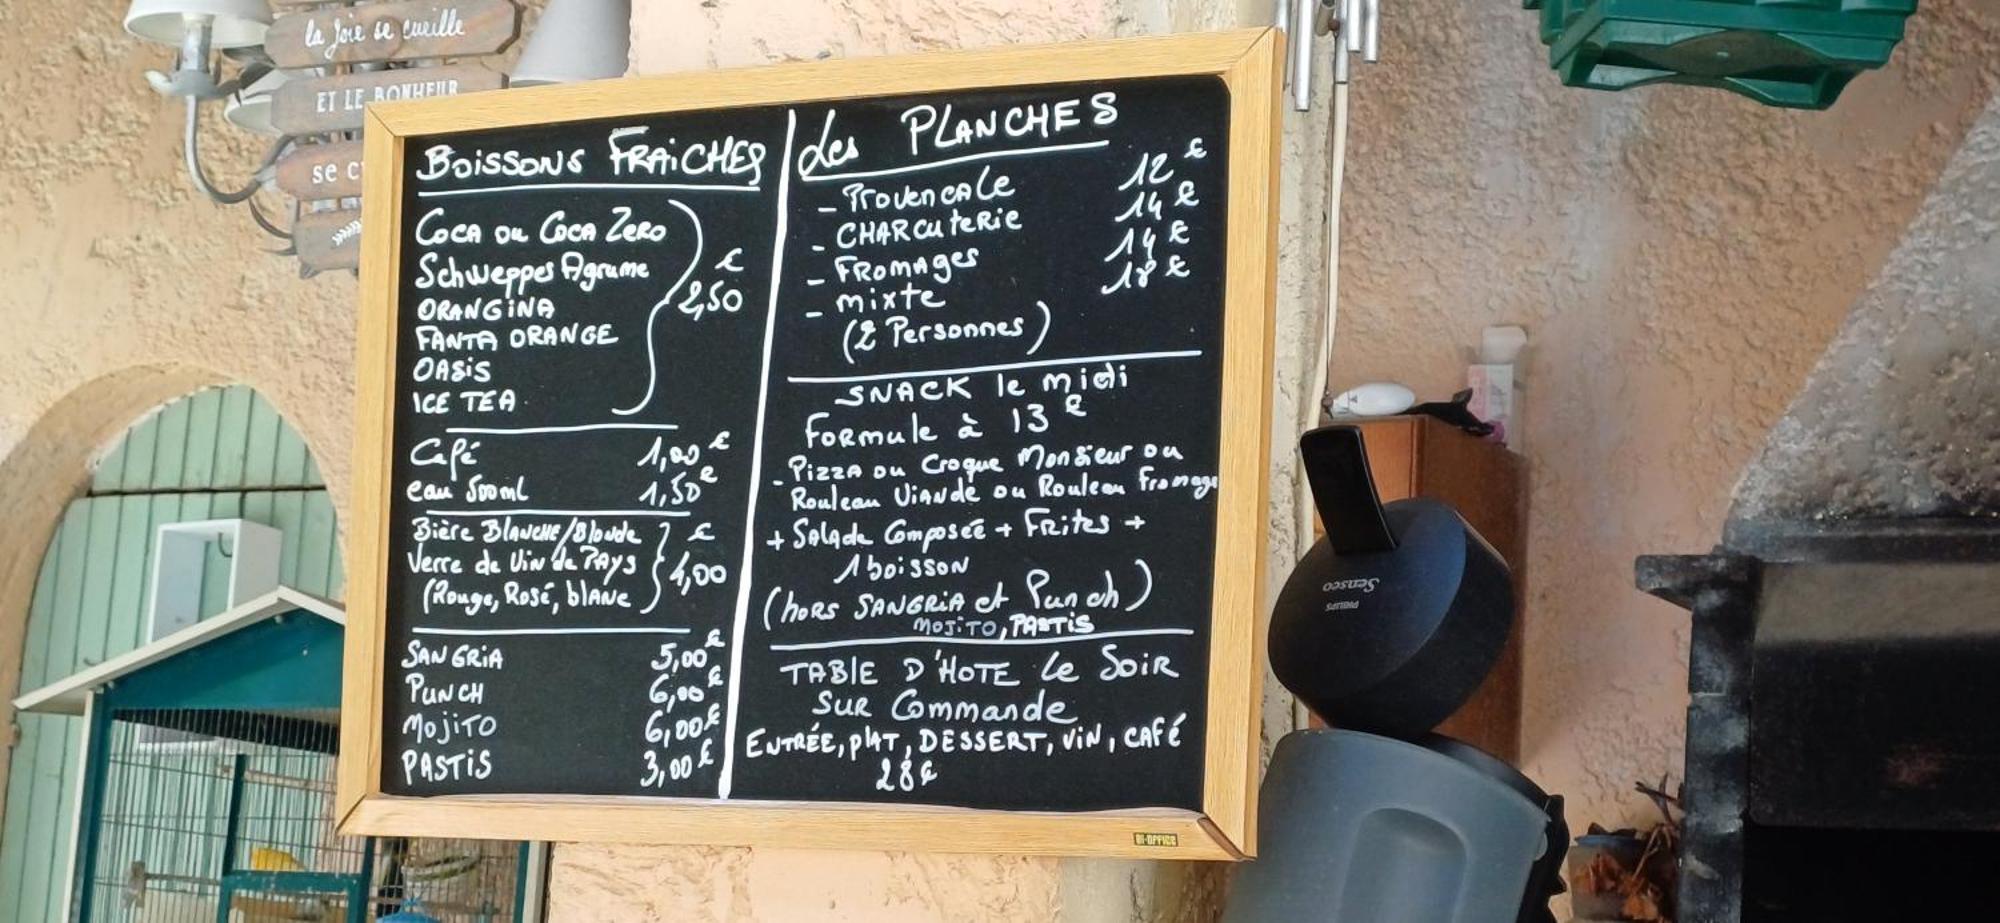 la Joie se cueille
ET LE BONHEUR
se c
BOISSONS FRAICHES
COCA OU COCA ZERO
Schweppes Agrume
ORANGINA
FANTA ORANGE
OASIS
ICE TEA
2,50 €
Café 1,00 €
eau 500ml 1,50 €
Bière BLANCHE/Blonde
Verre de Vin de PAYS
(Rouge, Rosé, blanc
4,00 €
SANGRIA 5,00 €
PUNCH 6,00 €
MOJITO 6,00 €
PASTIS 3,00 €
Les PLANCHES
- PROVENCALE 12 €
- CHARCUTERIE 14 €
- FROMAGES 14 €
- mixte 18 €
(2 Personnes)
SNACK le midi
FORMULE à 13 €
- PIZZA OU Croque Monsieur ou
Rouleau VIANDE ou Rouleau Fromage
+ SALADE Composée + FRITES +
1 boisson
(hors SANGRIA et Punch)
MOJITO, PASTIS
TABLE D'HOTE le SOIR
SUR Commande
ENTRÉE, PLAT, DESSERT, VIN, CAFÉ
28 €
BI-OFFICE
Senseo
PHILIPS